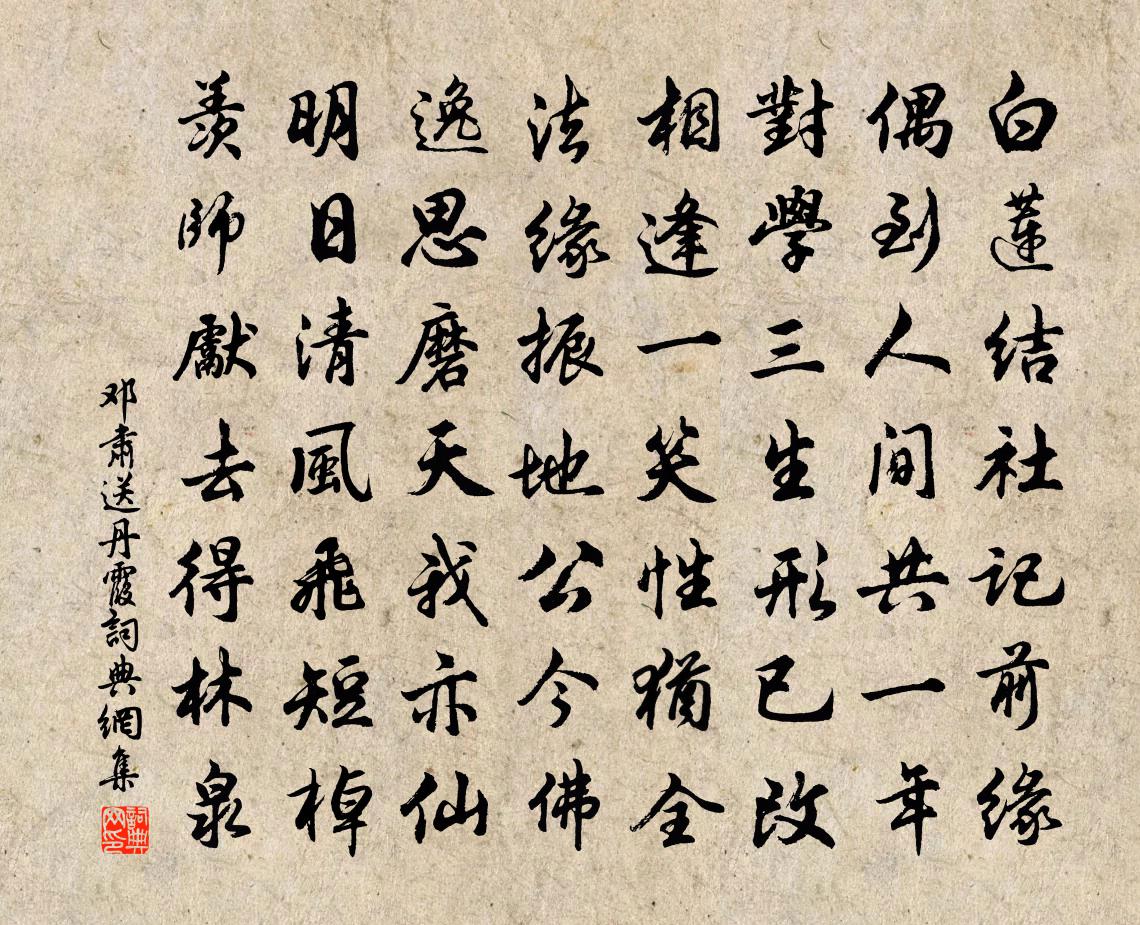 白蓮结社記前緣
偶到人间共一年
對學三生形已改
相逢一笑性猶全
法緣振地公今佛
逸思磨天我亦仙
明日清風飛短棹
羨師獻去得林泉
邓肅送丹霞詞典網集
詞典网印